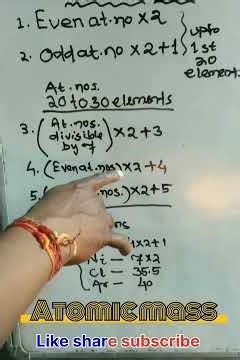 1. Even at. no x 2
2. Odd at. no x 2 + 1
upto
1st
20
elements
At. nos.
20 to 30 elements
3. (At. nos. divisible by 7) x 2 + 3
4. (Even at. nos) x 2 + 4
5. nos.) x 2 + 5
x 2 + 1
Ni – 7 x 2
Cl – 35.5
Ar – 40
Atomic mass
Like share subscribe